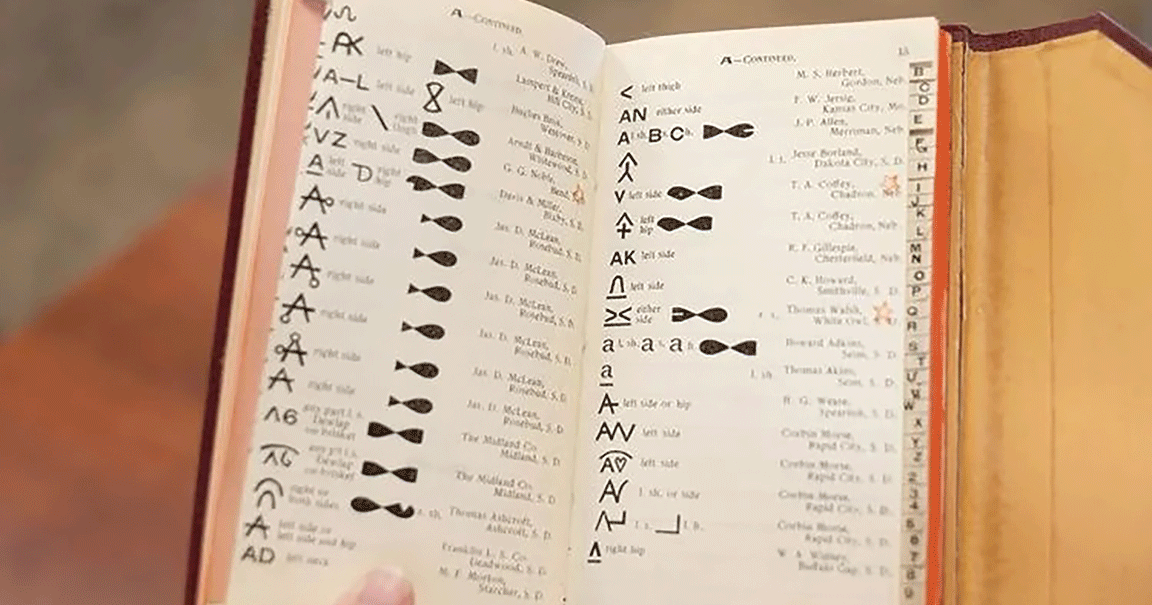 A—CONTINUED.
left hip
l. sh. A. W. Drew,
Spearfish, S. D.
A–L left side
Lampert & Keene,
Hill City, S. D.
right side
right thigh
left hip
Hughes Bros.,
VZ right side
Arndt &
Whitewood, S. D.
A left side
D right hip
G. G. Noble,
Bend,
Davis & Miller,
Bixby, S. D.
right side
Jas. D. McLean,
Rosebud, S. D.
right side
Jas. D. McLean,
Rosebud, S. D.
right side
Jas. D. McLean,
Rosebud, S. D.
right side
Jas. D. McLean,
Rosebud, S. D.
right side
Jas. D. McLean,
Rosebud, S. D.
A right side
Jas. D. McLean,
Rosebud, S. D.
Λ6 any part l. s.
Dewlap
on brisket
The Midland Co.
Midland, S. D.
Dewlap
on brisket
The Midland Co.
Midland, S. D.
right or
both sides
r. sh. Thomas Ashcroft,
Ashcroft, S. D.
A left side or
left side and hip
Franklin L. S. Co.
Deadwood, S. D.
AD left neck
M. F. Morton,
Starcher, S. D.
A—CONTINUED.
13
< left thigh
M. S. Herbert,
Gordon, Neb.
AN either side
F. W. Jersig,
Kansas City, Mo.
A l. sh. B s. C h.
J. P. Allen,
Merriman, Neb.
l. t. Jesse Borland,
Dakota City, S. D.
V left side
T. A. Coffey,
Chadron, Neb.
left hip
T. A. Coffey,
Chadron, Neb.
AK left side
R. F. Gillespie,
Chesterfield, Neb.
left side
C. K. Howard,
Smithville, S. D.
either side
Thomas Walsh,
White Owl,
a l. sh. a s. a h.
Howard Adkins,
Seim, S. D.
a
l. sh. Thomas Akins,
Seim, S. D.
A left side or hip
H. G. Weare,
Spearfish, S. D.
left side
Corbin Morse,
Rapid City, S. D.
left side
Corbin Morse,
Rapid City, S. D.
l. sh. or side
Corbin Morse,
Rapid City, S. D.
l. s. l. h.
Corbin Morse,
Rapid City, S. D.
right hip
Buffalo Gap, S. D.
B
C
D
E
F
G
H
I
J
K
L
M
N
O
P
Q
R
S
T
U
V
W
X
Y
Z
2
3
4
5
6
7
8
9